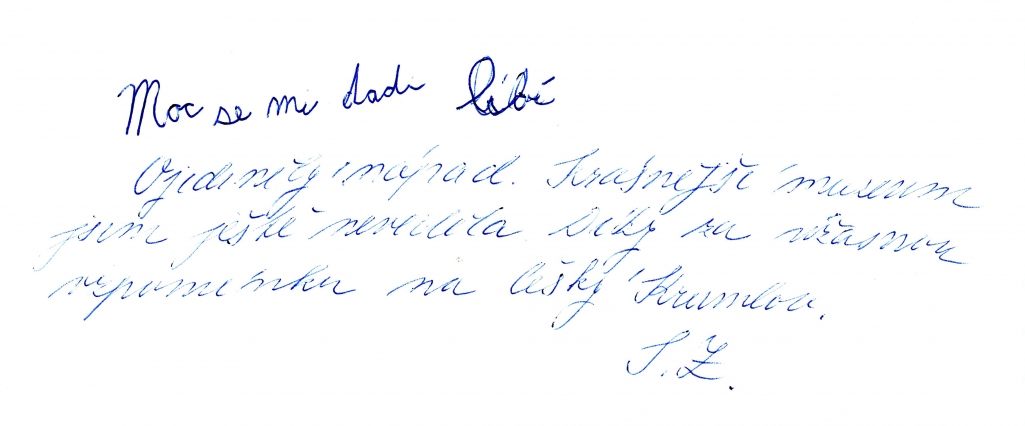 Moc se mi dadi líbí
Ojedinělý nápad. Krásnější museum
jsem ještě neviděla. Díky za úžasnou
vzpomínku na Český Krumlov.
S. Z.